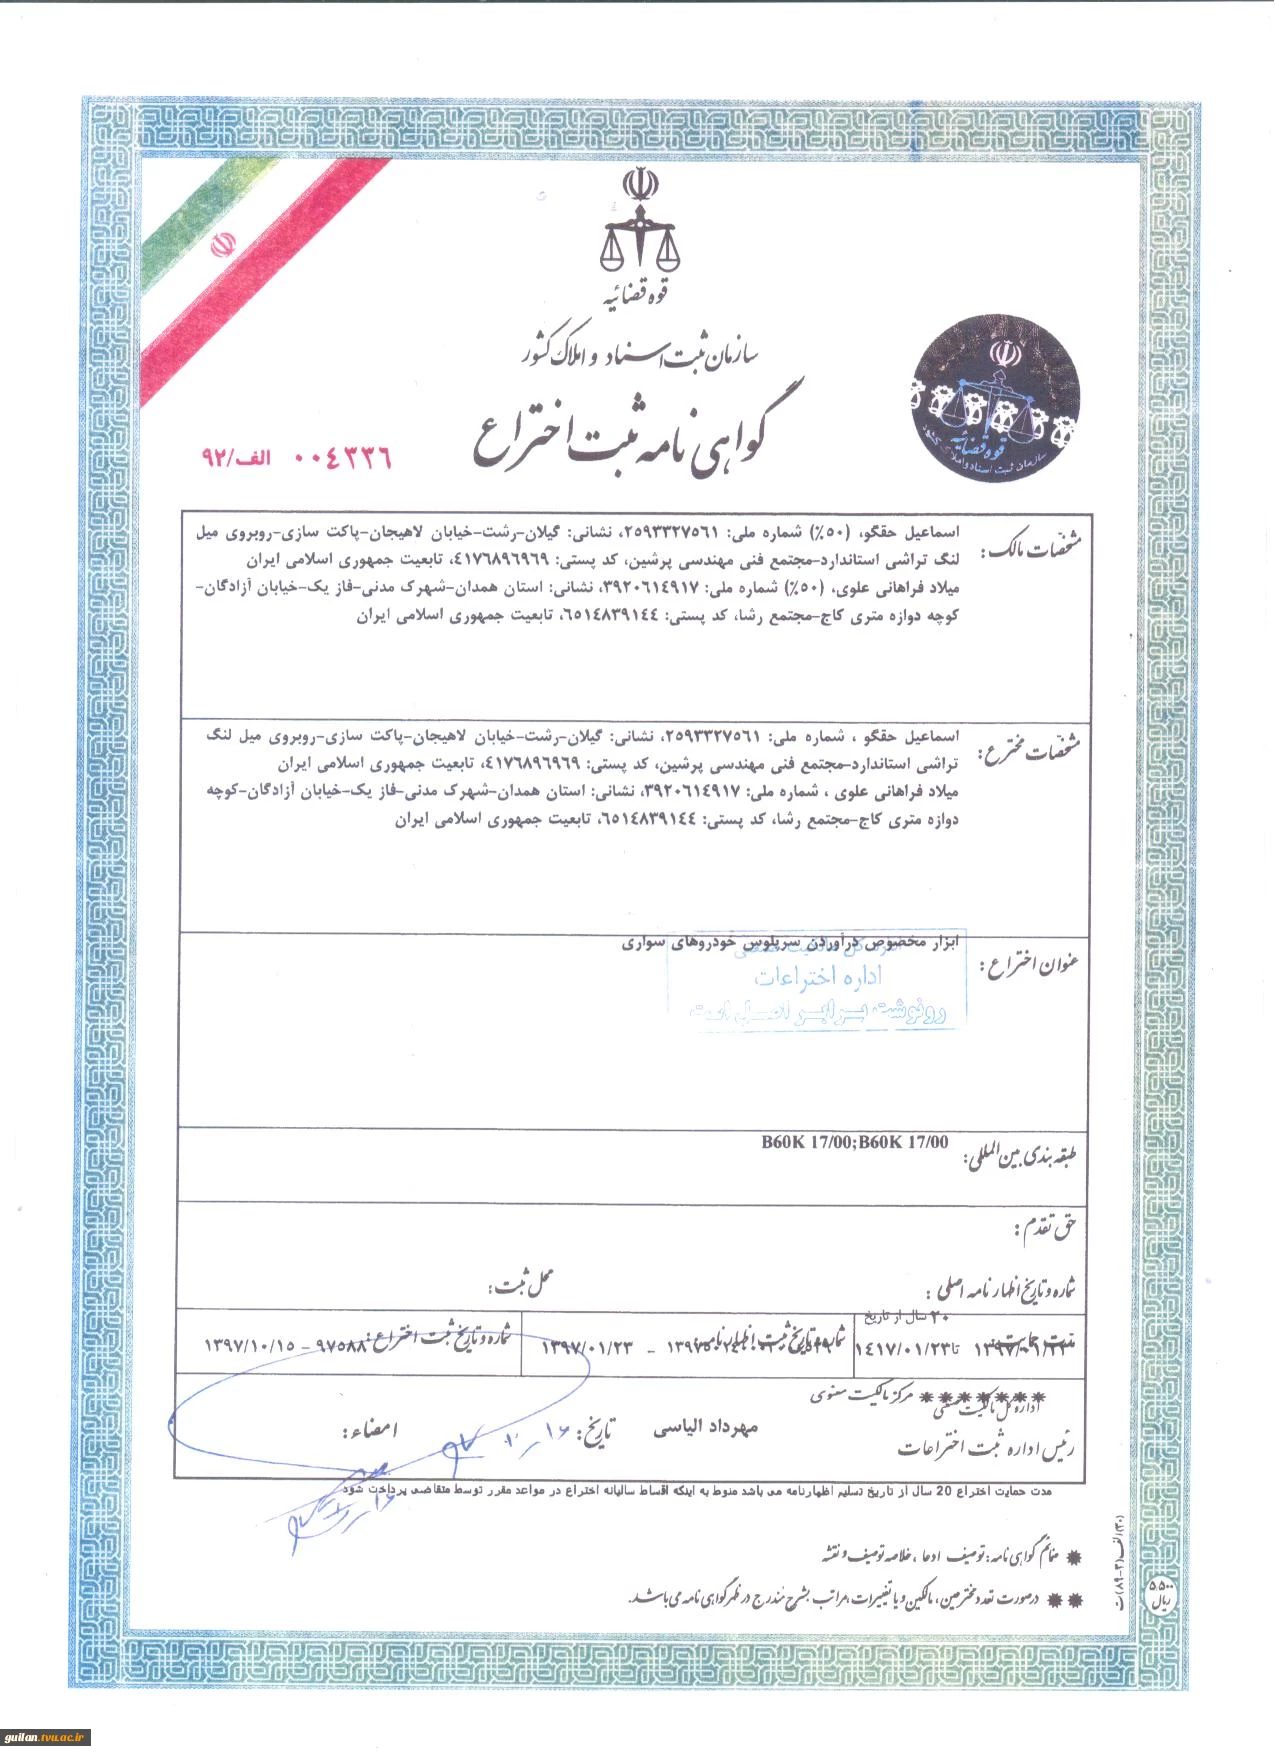 قوه قضائیه
سازمان ثبت اسناد و املاک کشور
گواهی نامه ثبت اختراع
۰۰٤۳۳٦ الف/۹۲
قوه قضائیه
سازمان ثبت اسناد و املاک کشور
مشخصات مالک: اسماعیل حقگو، (۵۰٪) شماره ملی: ۲۵۹۳۳۲۷۵٦۱، نشانی: گیلان-رشت-خیابان لاهیجان-پاکت سازی-روبروی میل
لنگ تراشی استاندارد-مجتمع فنی مهندسی پرشین، کد پستی: ٤۱۷٦۸۹٦۹٦۹، تابعیت جمهوری اسلامی ایران
میلاد فراهانی علوی، (۵۰٪) شماره ملی: ۳۹۲۰٦۱٤۹۱۷، نشانی: استان همدان-شهرک مدنی-فاز یک-خیابان آزادگان-
کوچه دوازه متری کاج-مجتمع رشا، کد پستی: ٦۵۱٤۸۳۹۱٤٤، تابعیت جمهوری اسلامی ایران
مشخصات مخترع: اسماعیل حقگو ، شماره ملی: ۲۵۹۳۳۲۷۵٦۱، نشانی: گیلان-رشت-خیابان لاهیجان-پاکت سازی-روبروی میل لنگ
تراشی استاندارد-مجتمع فنی مهندسی پرشین، کد پستی: ٤۱۷٦۸۹٦۹٦۹، تابعیت جمهوری اسلامی ایران
میلاد فراهانی علوی ، شماره ملی: ۳۹۲۰٦۱٤۹۱۷، نشانی: استان همدان-شهرک مدنی-فاز یک-خیابان آزادگان-کوچه
دوازه متری کاج-مجتمع رشا، کد پستی: ٦۵۱٤۸۳۹۱٤٤، تابعیت جمهوری اسلامی ایران
عنوان اختراع: ابزار مخصوص درآوردن سرپلوس خودروهای سواری
اداره اختراعات
رونوشت برابر اصل است
طبقه بندی بین المللی: B60K 17/00;B60K 17/00
حق تقدم:
شماره و تاریخ اظهارنامه اصلی: محل ثبت:
مدت حمایت: ۲۰ سال از تاریخ
۱۳۹۷/۰۱/۲۳ تا ۱٤۱۷/۰۱/۲۳
شماره و تاریخ ثبت اظهارنامه: - ۱۳۹۷/۰۱/۲۳
شماره و تاریخ ثبت اختراع: ۹۷۵۸۸ - ۱۳۹۷/۱۰/۱۵
******* مرکز مالکیت معنوی
اداره کل مالکیت صنعتی
رئیس اداره ثبت اختراعات مهرداد الیاسی تاریخ: امضاء:
مدت حمایت اختراع 20 سال از تاریخ تسلیم اظهارنامه می باشد منوط به اینکه اقساط سالیانه اختراع در مواعد مقرر توسط متقاضی پرداخت شود
* ضمائم گواهی نامه: توصیف ادعا، خلاصه توصیف و نقشه
** درصورت تعدد مخترعین، مالکین و یا تغییرات، مراتب بشرح مندرج در ظهر گواهی نامه می باشد.
۵۵۰۰
ریال
guilan.tvu.ac.ir